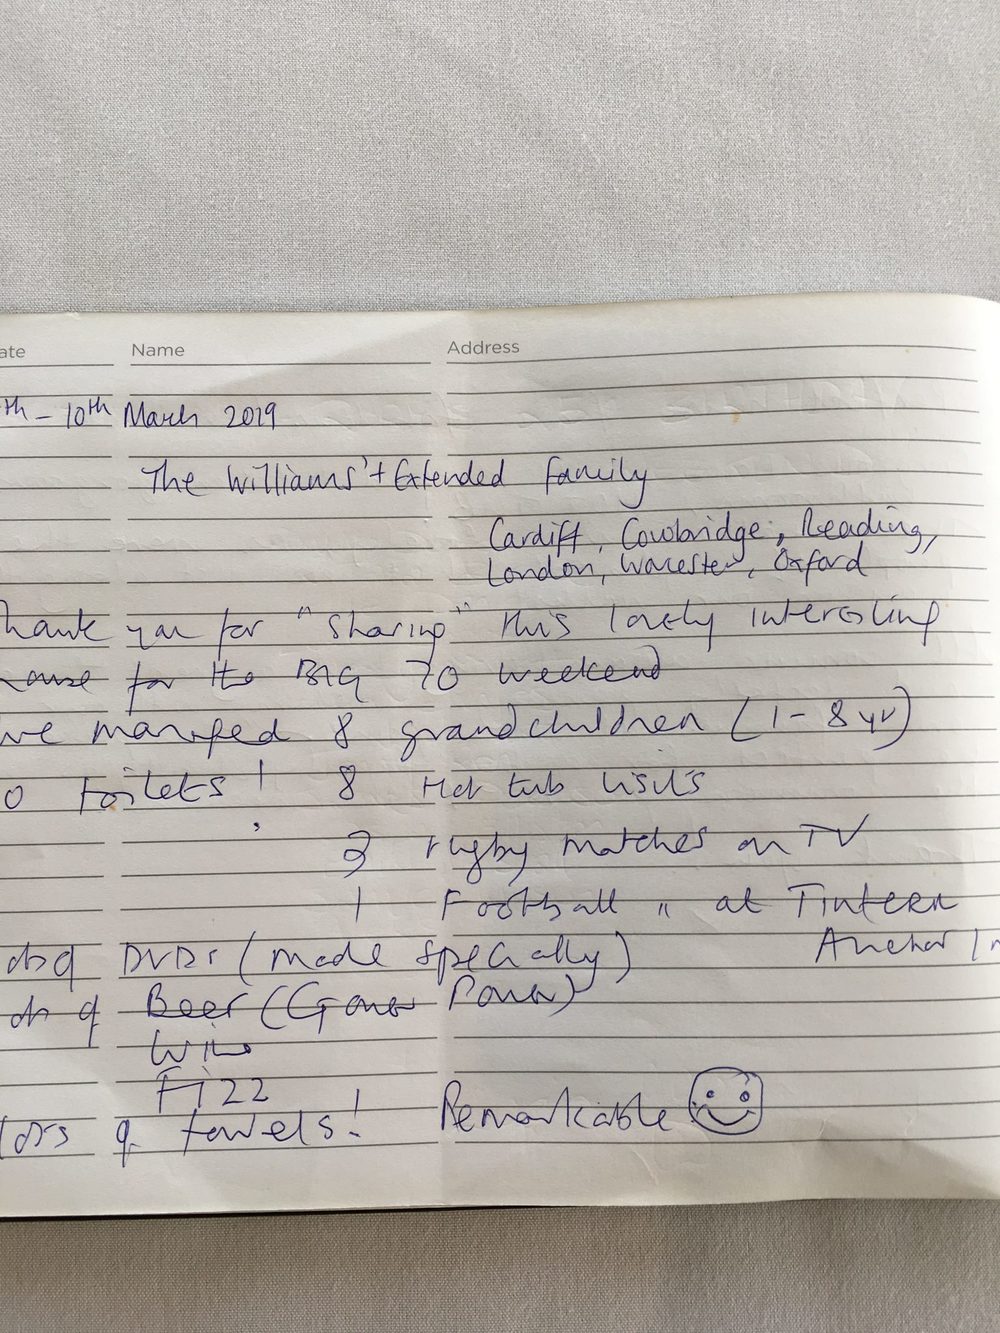 ate Name Address
th - 10th March 2019
The Williams' + Extended Family
Cardiff, Cowbridge, Reading,
London, Worcester, Oxford
hank you for "sharing" this lovely interesting
ouse for the BIG 70 weekend
we managed 8 grandchildren (1-8 yr)
0 toilets! 8 Hot tub visits
rugby matches on TV
1 Football " at Tintern
Anchor In
DVDs (made specially)
Beer (Gower Power)
Wine
Fizz
lots of towels! Remarkable